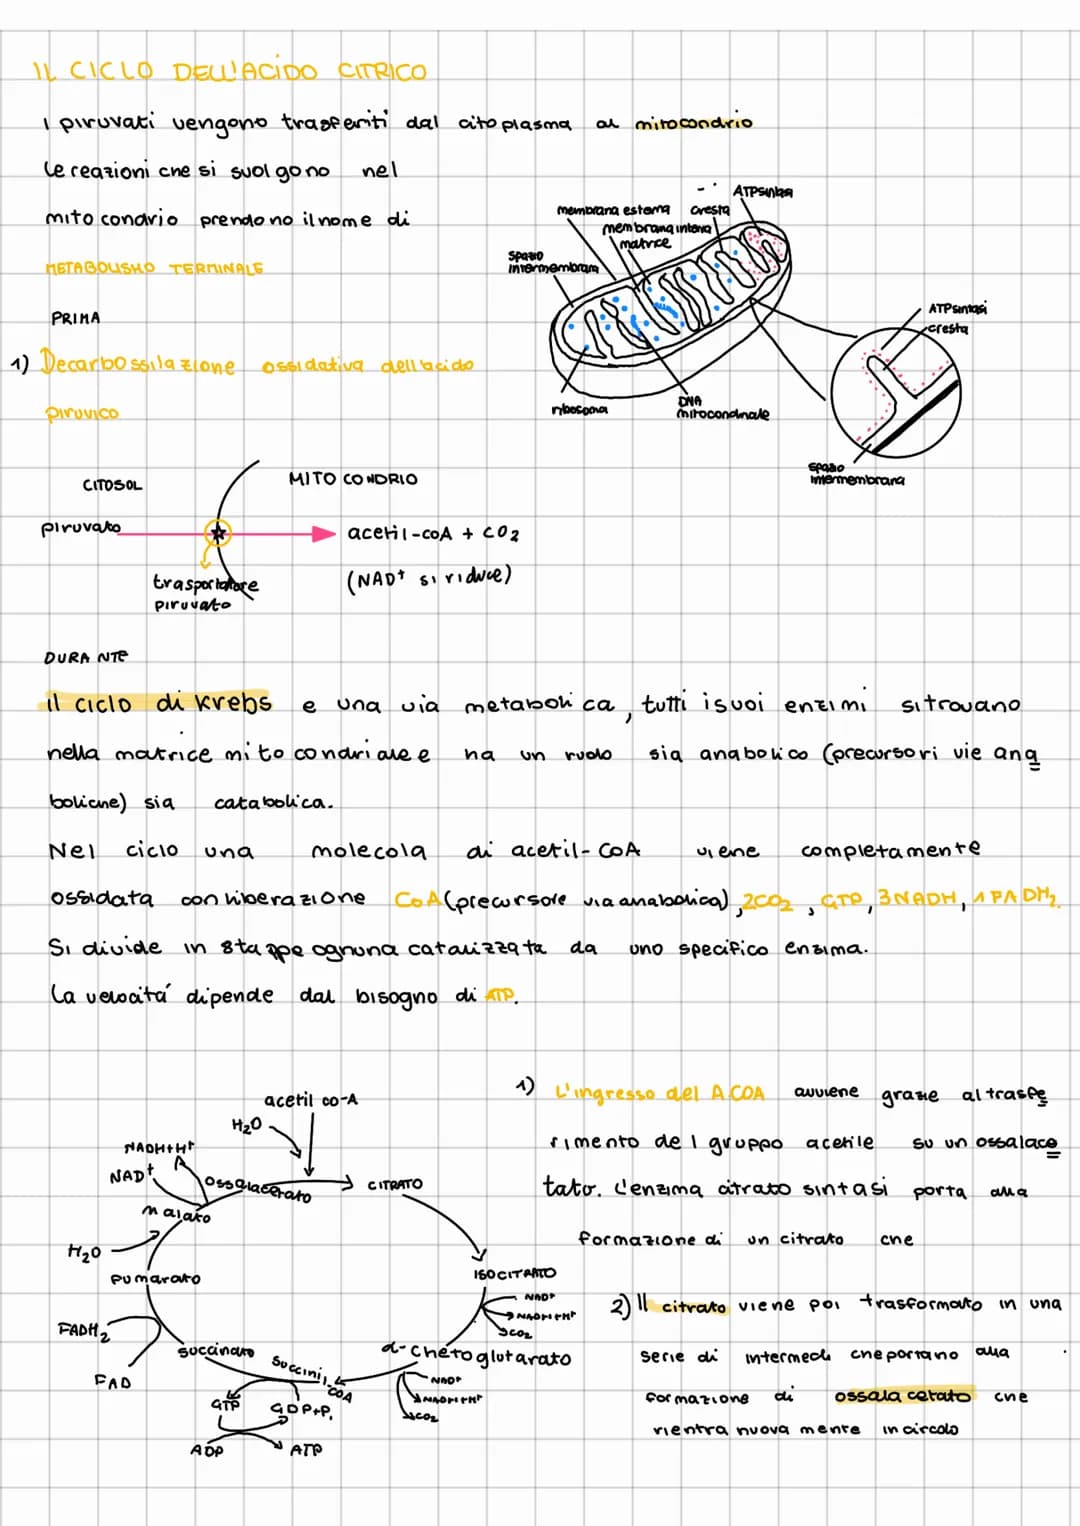 IL CICLO DELL'ACIDO CITRICO
I piruvati vengono trasferiti dal citoplasma al mitocondrio
le reazioni che si svolgono nel
mitocondrio prendono il nome di
METABOLISMO TERMINALE
PRIMA
1) Decarbossilazione ossidativa dell'acido
piruvico
ATPsintasi
membrana esterna cresta
membrana interna
matrice
spazio
intermembrana
ribosoma
DNA
mitocondriale
ATPsintasi
cresta
spazio
intermembrana
CITOSOL
MITOCONDRIO
piruvato
acetil-coA + CO2
trasportatore
piruvato
(NAD+ si riduce)
DURANTE
il ciclo di Krebs e una via metabolica, tutti i suoi enzimi si trovano
nella matrice mitocondriale e ha un ruolo sia anabolico (precursori vie ana
boliche) sia catabolica.
Nel ciclo una molecola di acetil-CoA viene completamente
ossidata con liberazione CoA (precursore via anabolica), 2CO2, GTP, 3NADH, 1FADH2.
Si divide in 8 tappe ognuna catalizzata da uno specifico enzima.
La velocitá dipende dal bisogno di ATP.
acetil co-A
H2O
NADH+H+
NAD+
ossalacetato
CITRATO
malato
H2O
fumarato
ISOCITRATO
NAD+
NADH+H+
CO2
FADH2
FAD
succinato
succinil-COA
α-chetoglutarato
NAD+
NADH+H+
CO2
GTP
GDP+Pi
ADP
ATP
1) L'ingresso del A.COA avviene grazie al trasfe
rimento del gruppo acetile su un ossalace
tato. L'enzima citrato sintasi porta alla
formazione di un citrato che
2) Il citrato viene poi trasformato in una
serie di intermedi che portano alla
formazione di ossalacetato che
rientra nuovamente in circolo